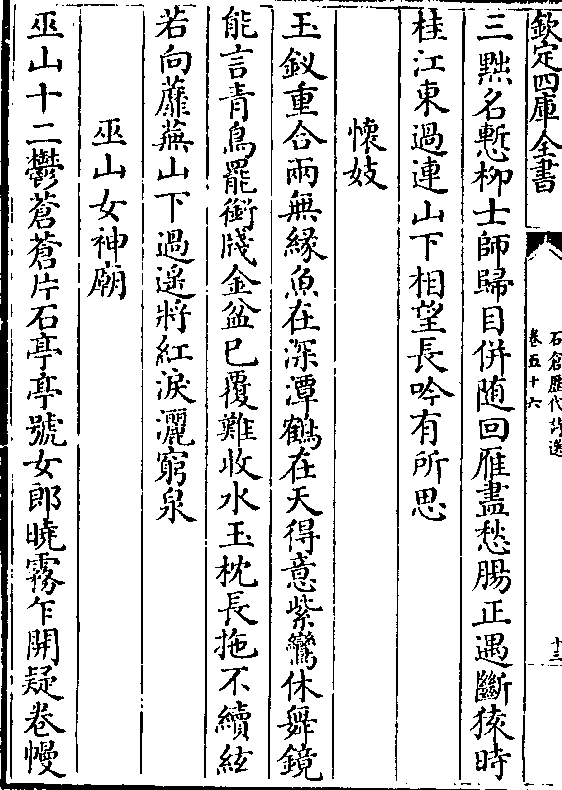 欽定四庫全書
石倉歷代詩選
卷五十六
十三
三黜名慙柳士師歸目併随回雁盡愁腸正遇斷猿時
桂江東過連山下相望長吟有所思
懷妓
玉釵重合兩無緣魚在深潭鶴在天得意紫鸞休舞鏡
能言青鳥罷銜牋金盆已覆難收水玉枕長拖不續絃
若向蘼蕪山下過遥將紅淚灑窮泉
巫山女神廟
巫山十二鬱蒼蒼片石亭亭號女郎曉霧乍開疑卷幔